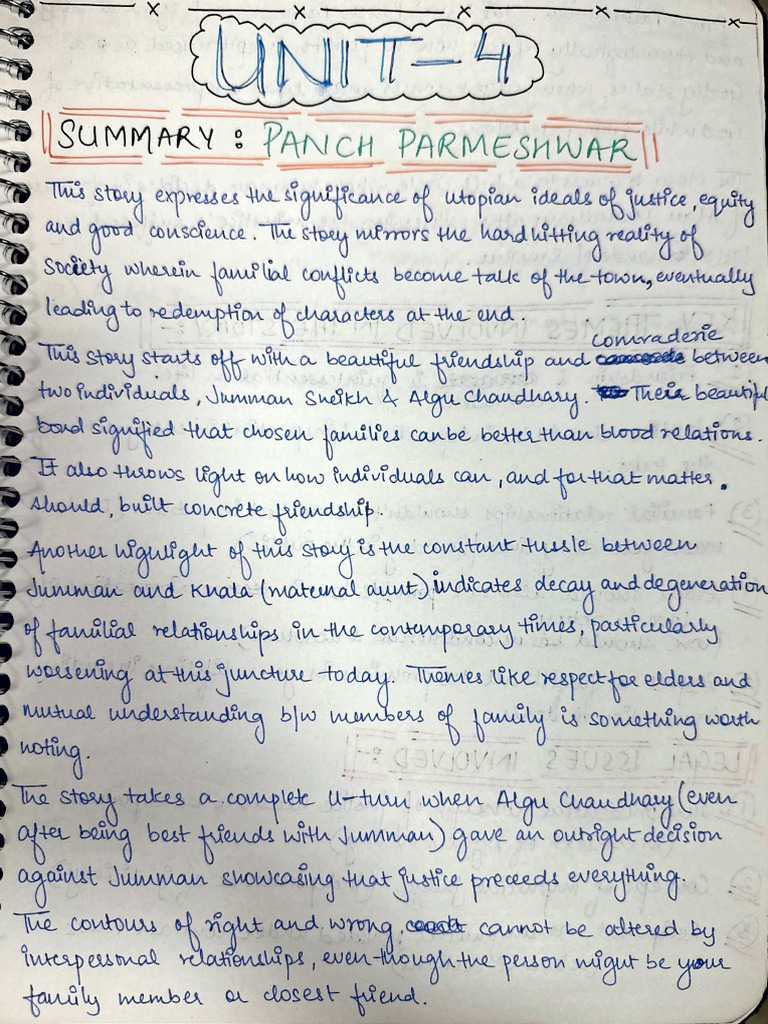 UNIT-4
SUMMARY : PANCH PARMESHWAR
This story expresses the significance of utopian ideals of justice, equity
and good conscience. The story mirrors the hard hitting reality of
society wherein familial conflicts become talk of the town, eventually
leading to redemption of characters at the end.
This story starts off with a beautiful friendship and comraderie between
two individuals, Jumman Sheikh & Algu Chaudhary. Their beautiful
bond signified that chosen families can be better than blood relations.
It also throws light on how individuals can, and for that matter,
should, built concrete friendship.
Another highlight of this story is the constant tussle between
Jumman and Khala (maternal aunt) indicates decay and degeneration
of familial relationships in the contemporary times, particularly
worsening at this juncture today. Themes like respect for elders and
mutual understanding b/w members of family is something worth
noting.
The story takes a complete U-turn when Algu Chaudhary (even
after being best friends with Jumman) gave an outright decision
against Jumman showcasing that justice preceeds everything.
The contours of right and wrong cannot be altered by
interpersonal relationships, even though the person might be your
family member or closest friend.